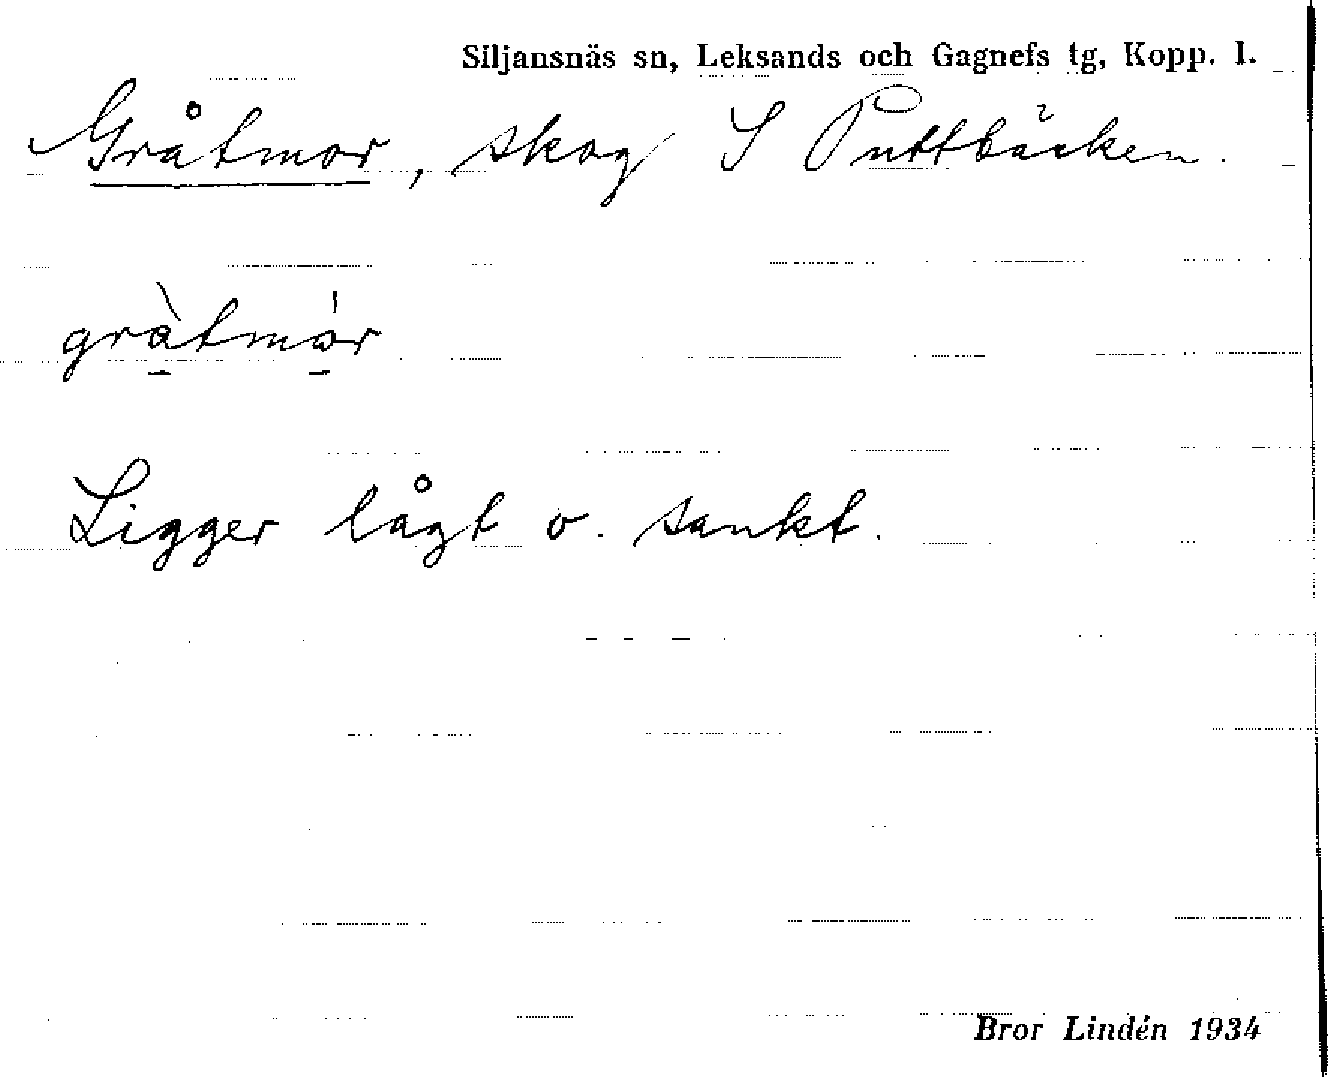 Siljansnäs sn, Leksands och Gagnefs tg, Kopp. l.
Gråtmor, skog S Puttbäcken.
grà̱tmó̱r
Ligger lågt o. sankt.
Bror Lindén 1934